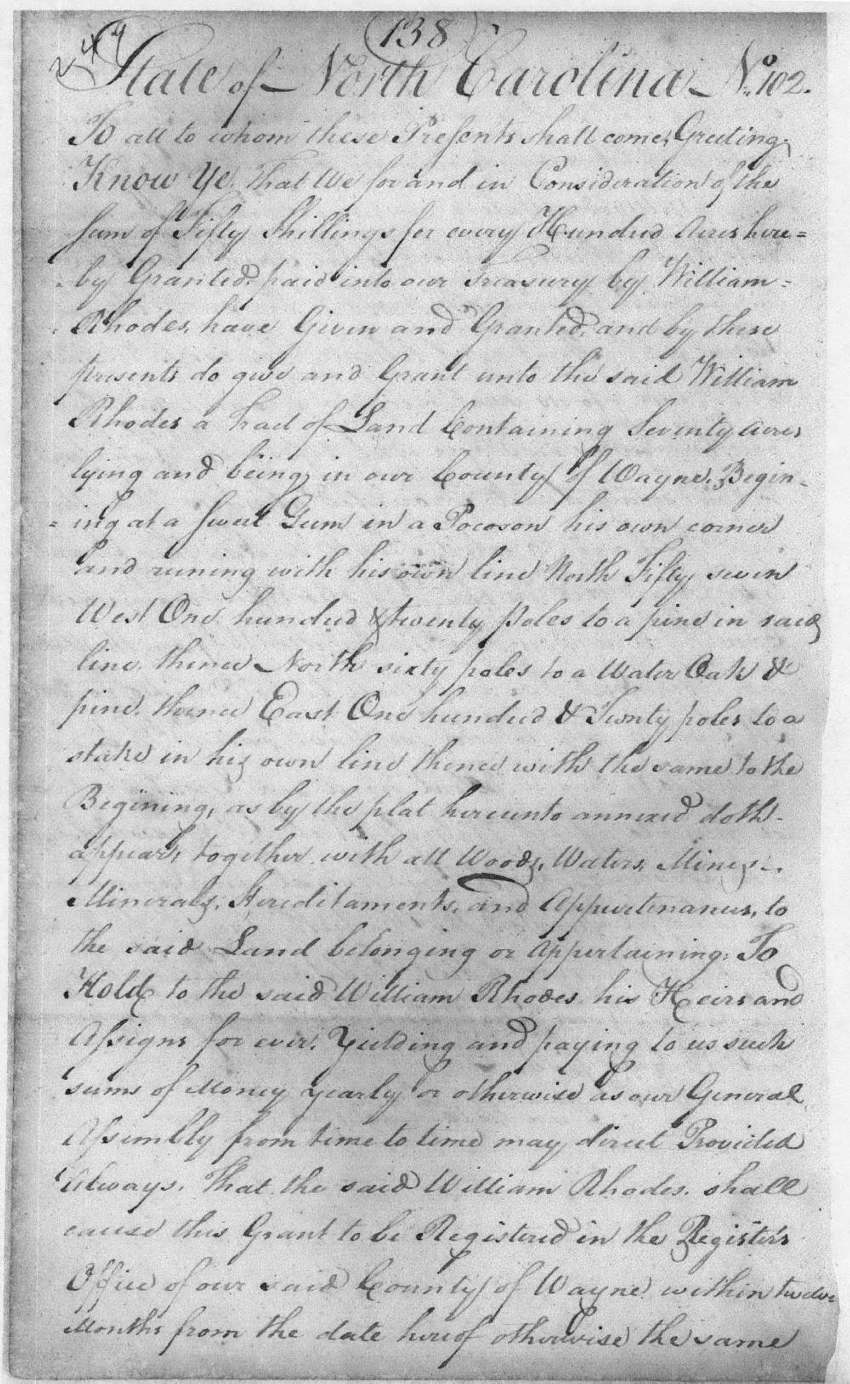 138
244
State of North Carolina No. 102.
To all to whom these Presents shall come, Greeting,
Know Ye, That We for and in Consideration of the
Sum of Fifty Shillings for every Hundred Acres here=
by Granted, paid into our Treasury by William=
Rhodes, have Given and Granted, and by these
presents do give and Grant unto the said William
Rhodes a tract of Land Containing Seventy Acres
lying and being in our County of Wayne, Begin-
ing at a Sweet Gum in a Pocoson his own corner
and runing with his own line North Fifty seven
West One hundred & twenty poles to a pine in said
line, thence North sixty poles to a Water Oak &
pine, thence East One hundred & Twenty poles to a
stake in his own line thence with the same to the
Begining, as by the plat hereunto annexed doth
appear, together with all Woods, Waters, Mines,
Minerals, Hereditaments, and Appurtenances, to
the said Land belonging or Appertaining: To
Hold to the said William Rhodes his Heirs and
Assigns for ever. Yielding and paying to us such
sums of Money yearly or otherwise as our General
Assembly from time to time may direct Provided
Always, That the said William Rhodes, shall
cause this Grant to be Registered in the Register's
Office of our said County of Wayne within twelve
Months from the date hereof otherwise the same